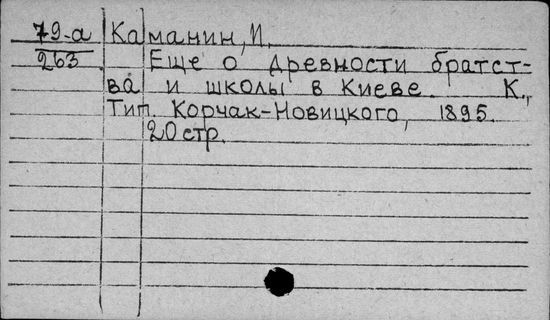 79-а Каманин, И.
263 Еще о древности братст-
ва и школы в Киеве. К.,
Тип. Корчак-Новицкого, 1895.
20 стр.